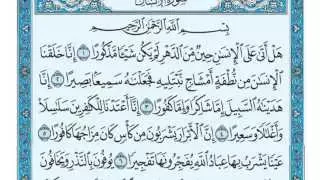 سورة الإنسان
بِسْمِ اللَّهِ الرَّحْمَٰنِ الرَّحِيمِ
هَلْ أَتَىٰ عَلَى الْإِنسَانِ حِينٌ مِّنَ الدَّهْرِ لَمْ يَكُن شَيْئًا مَّذْكُورًا ١ إِنَّا خَلَقْنَا
الْإِنسَانَ مِن نُّطْفَةٍ أَمْشَاجٍ نَّبْتَلِيهِ فَجَعَلْنَاهُ سَمِيعًا بَصِيرًا ٢ إِنَّا
هَدَيْنَاهُ السَّبِيلَ إِمَّا شَاكِرًا وَإِمَّا كَفُورًا ٣ إِنَّا أَعْتَدْنَا لِلْكَافِرِينَ سَلَاسِلَا
وَأَغْلَالًا وَسَعِيرًا ٤ إِنَّ الْأَبْرَارَ يَشْرَبُونَ مِن كَأْسٍ كَانَ مِزَاجُهَا كَافُورًا ٥
عَيْنًا يَشْرَبُ بِهَا عِبَادُ اللَّهِ يُفَجِّرُونَهَا تَفْجِيرًا ٦ يُوفُونَ بِالنَّذْرِ وَيَخَافُونَ